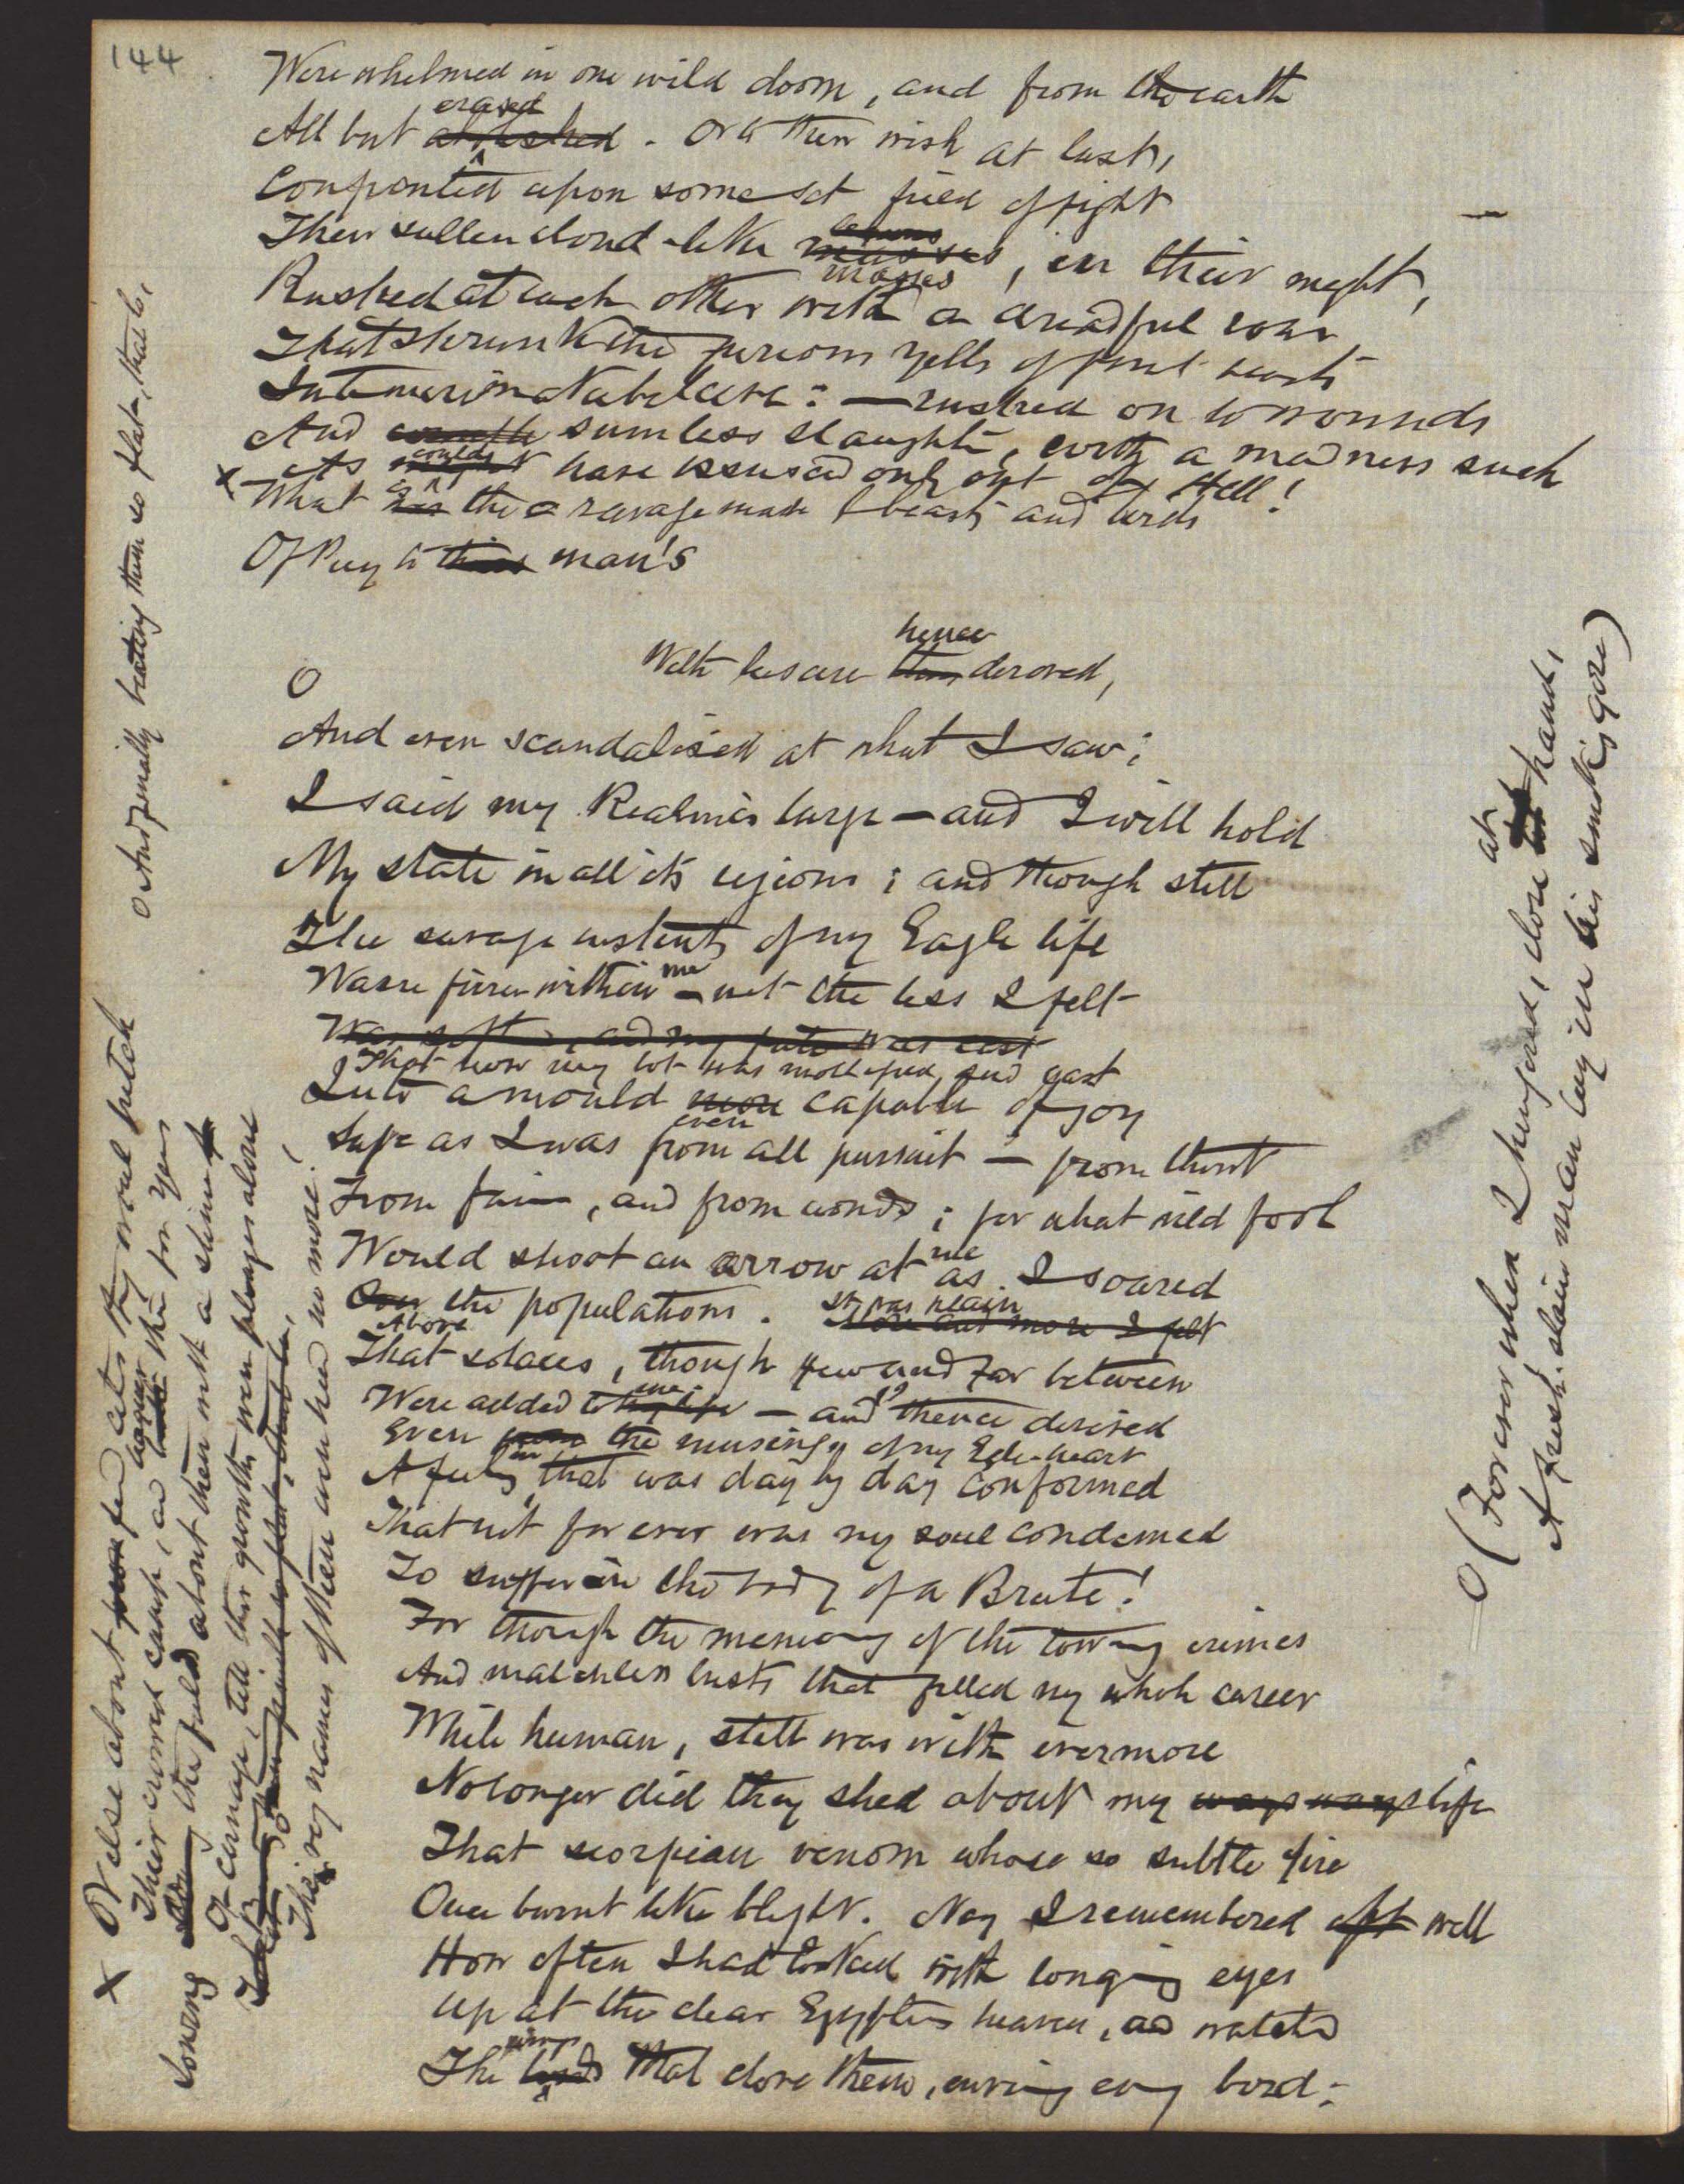 144
Were whelmed in one wild doom, and from the earth
All but abolished erased. Or to their wish at last,
Confronted upon some set field of fight
Their sullen cloud-like masses, in their might,
Rushed at each other with a dreadful roar
That shrunk the furious yells of brute beasts
Into mere inarticulate : — rushed on to wounds
And sumless slaughter, with a madness such
x As might could have issued only out of Hell!
What is the ravage made by beasts and birds
Of Prey to this man's
hence
O With leisure then derived,
And even scandalised at what I saw;
I said my Realm is large — and I will hold
My state in all its regions; and though still
The savage instincts of my Eagle life
Were fierce within me — not the less I felt
Was softened, and my fate was cast
That now my lot was mollified, and cast
Into a mould more even capable of joy
Safe as I was from all pursuit — from thirst
From fire, and from winds; for what wild fool
Would shoot an arrow at me as I soared
Over Above the populations. It was plain More and more I felt
That solaces, though few and far between
Were added to my life me — and I thence derived
Even from the in musings of my Eagle-heart
A feeling that was day by day confirmed
That not for ever was my soul condemned
To suffer in the body of a Brute!
For though the memory of the towering crimes
And matchless lusts that filled my whole career
While human, still was with evermore
No longer did they shed about my ways ways life
That scorpion venom whose so subtle fire
Once burnt like blight. Nay I remembered oft well
How often I had looked with longing eyes
Up at the clear Egyptian heaven, and watched
The birds wings that clove them, envying every bird:
x Or else about some few acts they would pitch
Their crowded camps, and then for years
Sowing the fields about them with a slime
Of carnage, till their growths were plagues alone
The very names of them are heard no more!
O And finally beating them so flat, that lo,
O (For ever when I hungered, close at hand,
A fresh-slain man lay in his smoking gore)